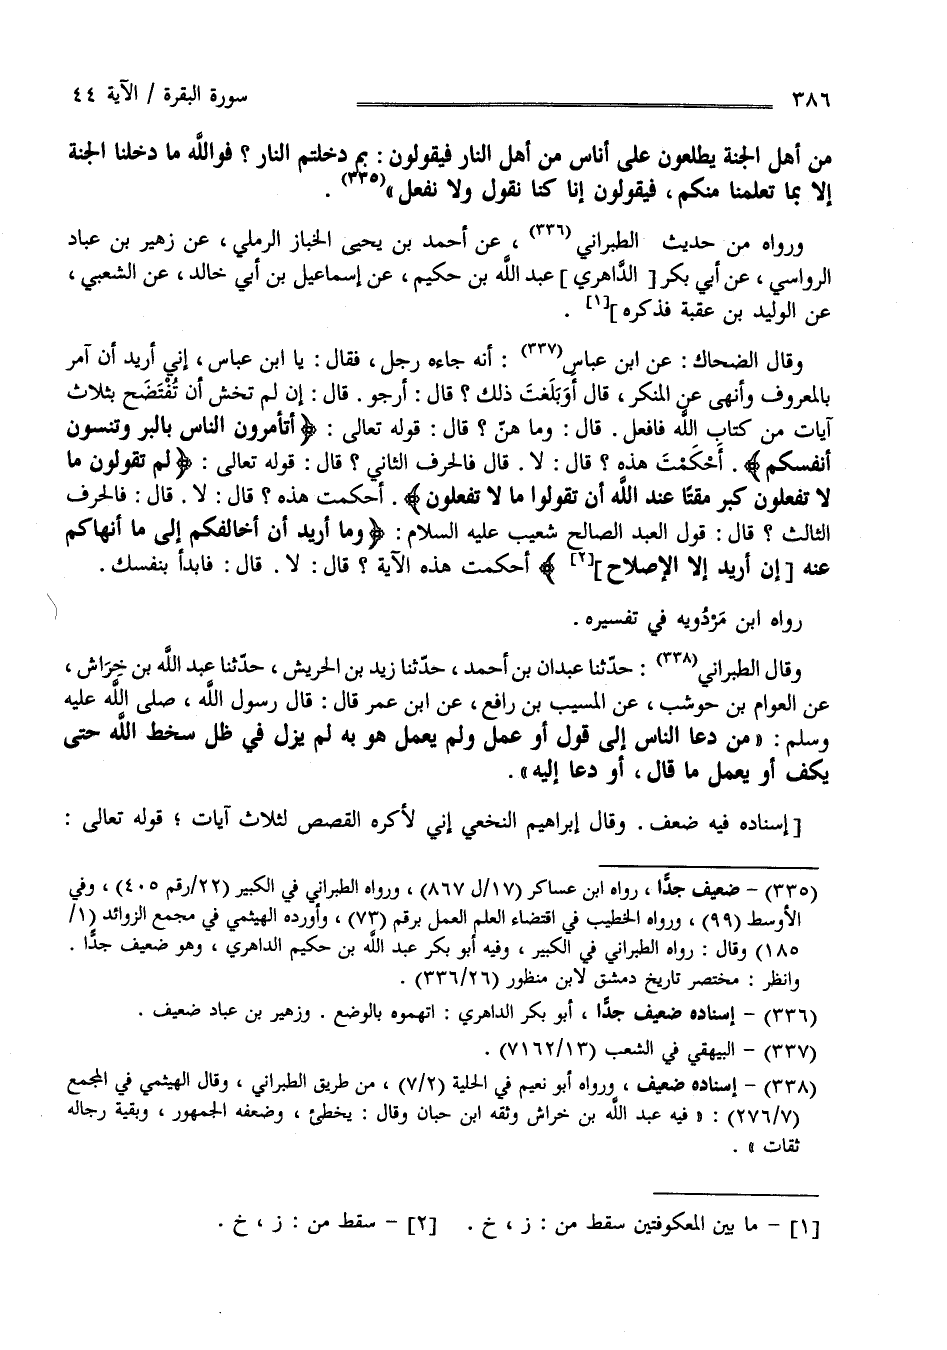 ٣٨٦ سورة البقرة / الآية ٤٤
من أهل الجنة يطلعون على أناس من أهل النار فيقولون : بم دخلتم النار ؟ فوالله ما دخلنا الجنة
إلا بما تعلمنا منكم ، فيقولون إنا كنا نقول ولا نفعل»(٣٣٥) .
ورواه من حديث الطبراني(٣٣٦) ، عن أحمد بن يحيى الخباز الرملي ، عن زهير بن عباد
الرواسي ، عن أبي بكر [ الدَّاهري ] عبد الله بن حكيم ، عن إسماعيل بن أبي خالد ، عن الشعبي ،
عن الوليد بن عقبة فذكره ][١] .
وقال الضحاك : عن ابن عباس(٣٣٧) : أنه جاءه رجل ، فقال : يا ابن عباس ، إني أريد أن آمر
بالمعروف وأنهى عن المنكر ، قال أَوَبَلَغتَ ذلك ؟ قال : أرجو . قال : إن لم تخش أن تُفْتَضَح بثلاث
آيات من كتاب الله فافعل . قال : وما هنّ ؟ قال : قوله تعالى : ﴿ أتأمرون الناس بالبر وتنسون
أنفسكم ﴾ . أَحْكَمْتَ هذه ؟ قال : لا . قال فالحرف الثاني ؟ قال : قوله تعالى : ﴿ لم تقولون ما
لا تفعلون كبر مقتًا عند الله أن تقولوا ما لا تفعلون ﴾ . أحكمت هذه ؟ قال : لا . قال : فالحرف
الثالث ؟ قال : قول العبد الصالح شعيب عليه السلام : ﴿ وما أريد أن أخالفكم إلى ما أنهاكم
عنه [ إن أريد إلا الإصلاح ][٢] ﴾ أحكمت هذه الآية ؟ قال : لا . قال : فابدأ بنفسك .
رواه ابن مَرْدُويه في تفسيره .
وقال الطبراني(٣٣٨) : حدّثنا عبدان بن أحمد ، حدّثنا زيد بن الحريش ، حدّثنا عبد الله بن خِرَاش ،
عن العوام بن حوشب ، عن المسيب بن رافع ، عن ابن عمر قال : قال رسول الله ، صلى الله عليه
وسلم : «من دعا الناس إلى قول أو عمل ولم يعمل هو به لم يزل في ظل سخط الله حتى
يكف أو يعمل ما قال ، أو دعا إليه» .
[ إسناده فيه ضعف . وقال إبراهيم النخعي إني لأكره القصص لثلاث آيات ؛ قوله تعالى :
(٣٣٥) – ضعيف جدًّا ، رواه ابن عساكر (١٧/ل ٨٦٧) ، ورواه الطبراني في الكبير (٢٢/رقم ٤٠٥) ، وفي
الأوسط (٩٩) ، ورواه الخطيب في اقتضاء العلم العمل برقم (٧٣) ، وأورده الهيثمي في مجمع الزوائد (١/
١٨٥) وقال : رواه الطبراني في الكبير ، وفيه أبو بكر عبد الله بن حكيم الداهري ، وهو ضعيف جدًّا .
وانظر : مختصر تاريخ دمشق لابن منظور (٣٣٦/٢٦) .
(٣٣٦) – إسناده ضعيف جدًّا ، أبو بكر الداهري : اتهموه بالوضع . وزهير بن عباد ضعيف .
(٣٣٧) – البيهقي في الشعب (٧١٦٢/١٣) .
(٣٣٨) – إسناده ضعيف ، ورواه أبو نعيم في الحلية (٧/٢) ، من طريق الطبراني ، وقال الهيثمي في المجمع
(٢٧٦/٧) : « فيه عبد الله بن خراش وثقه ابن حبان وقال : يخطئ ، وضعفه الجمهور ، وبقية رجاله
ثقات » .
[١] – ما بين المعكوفتين سقط من : ز ، خ . [٢] – سقط من : ز ، خ .